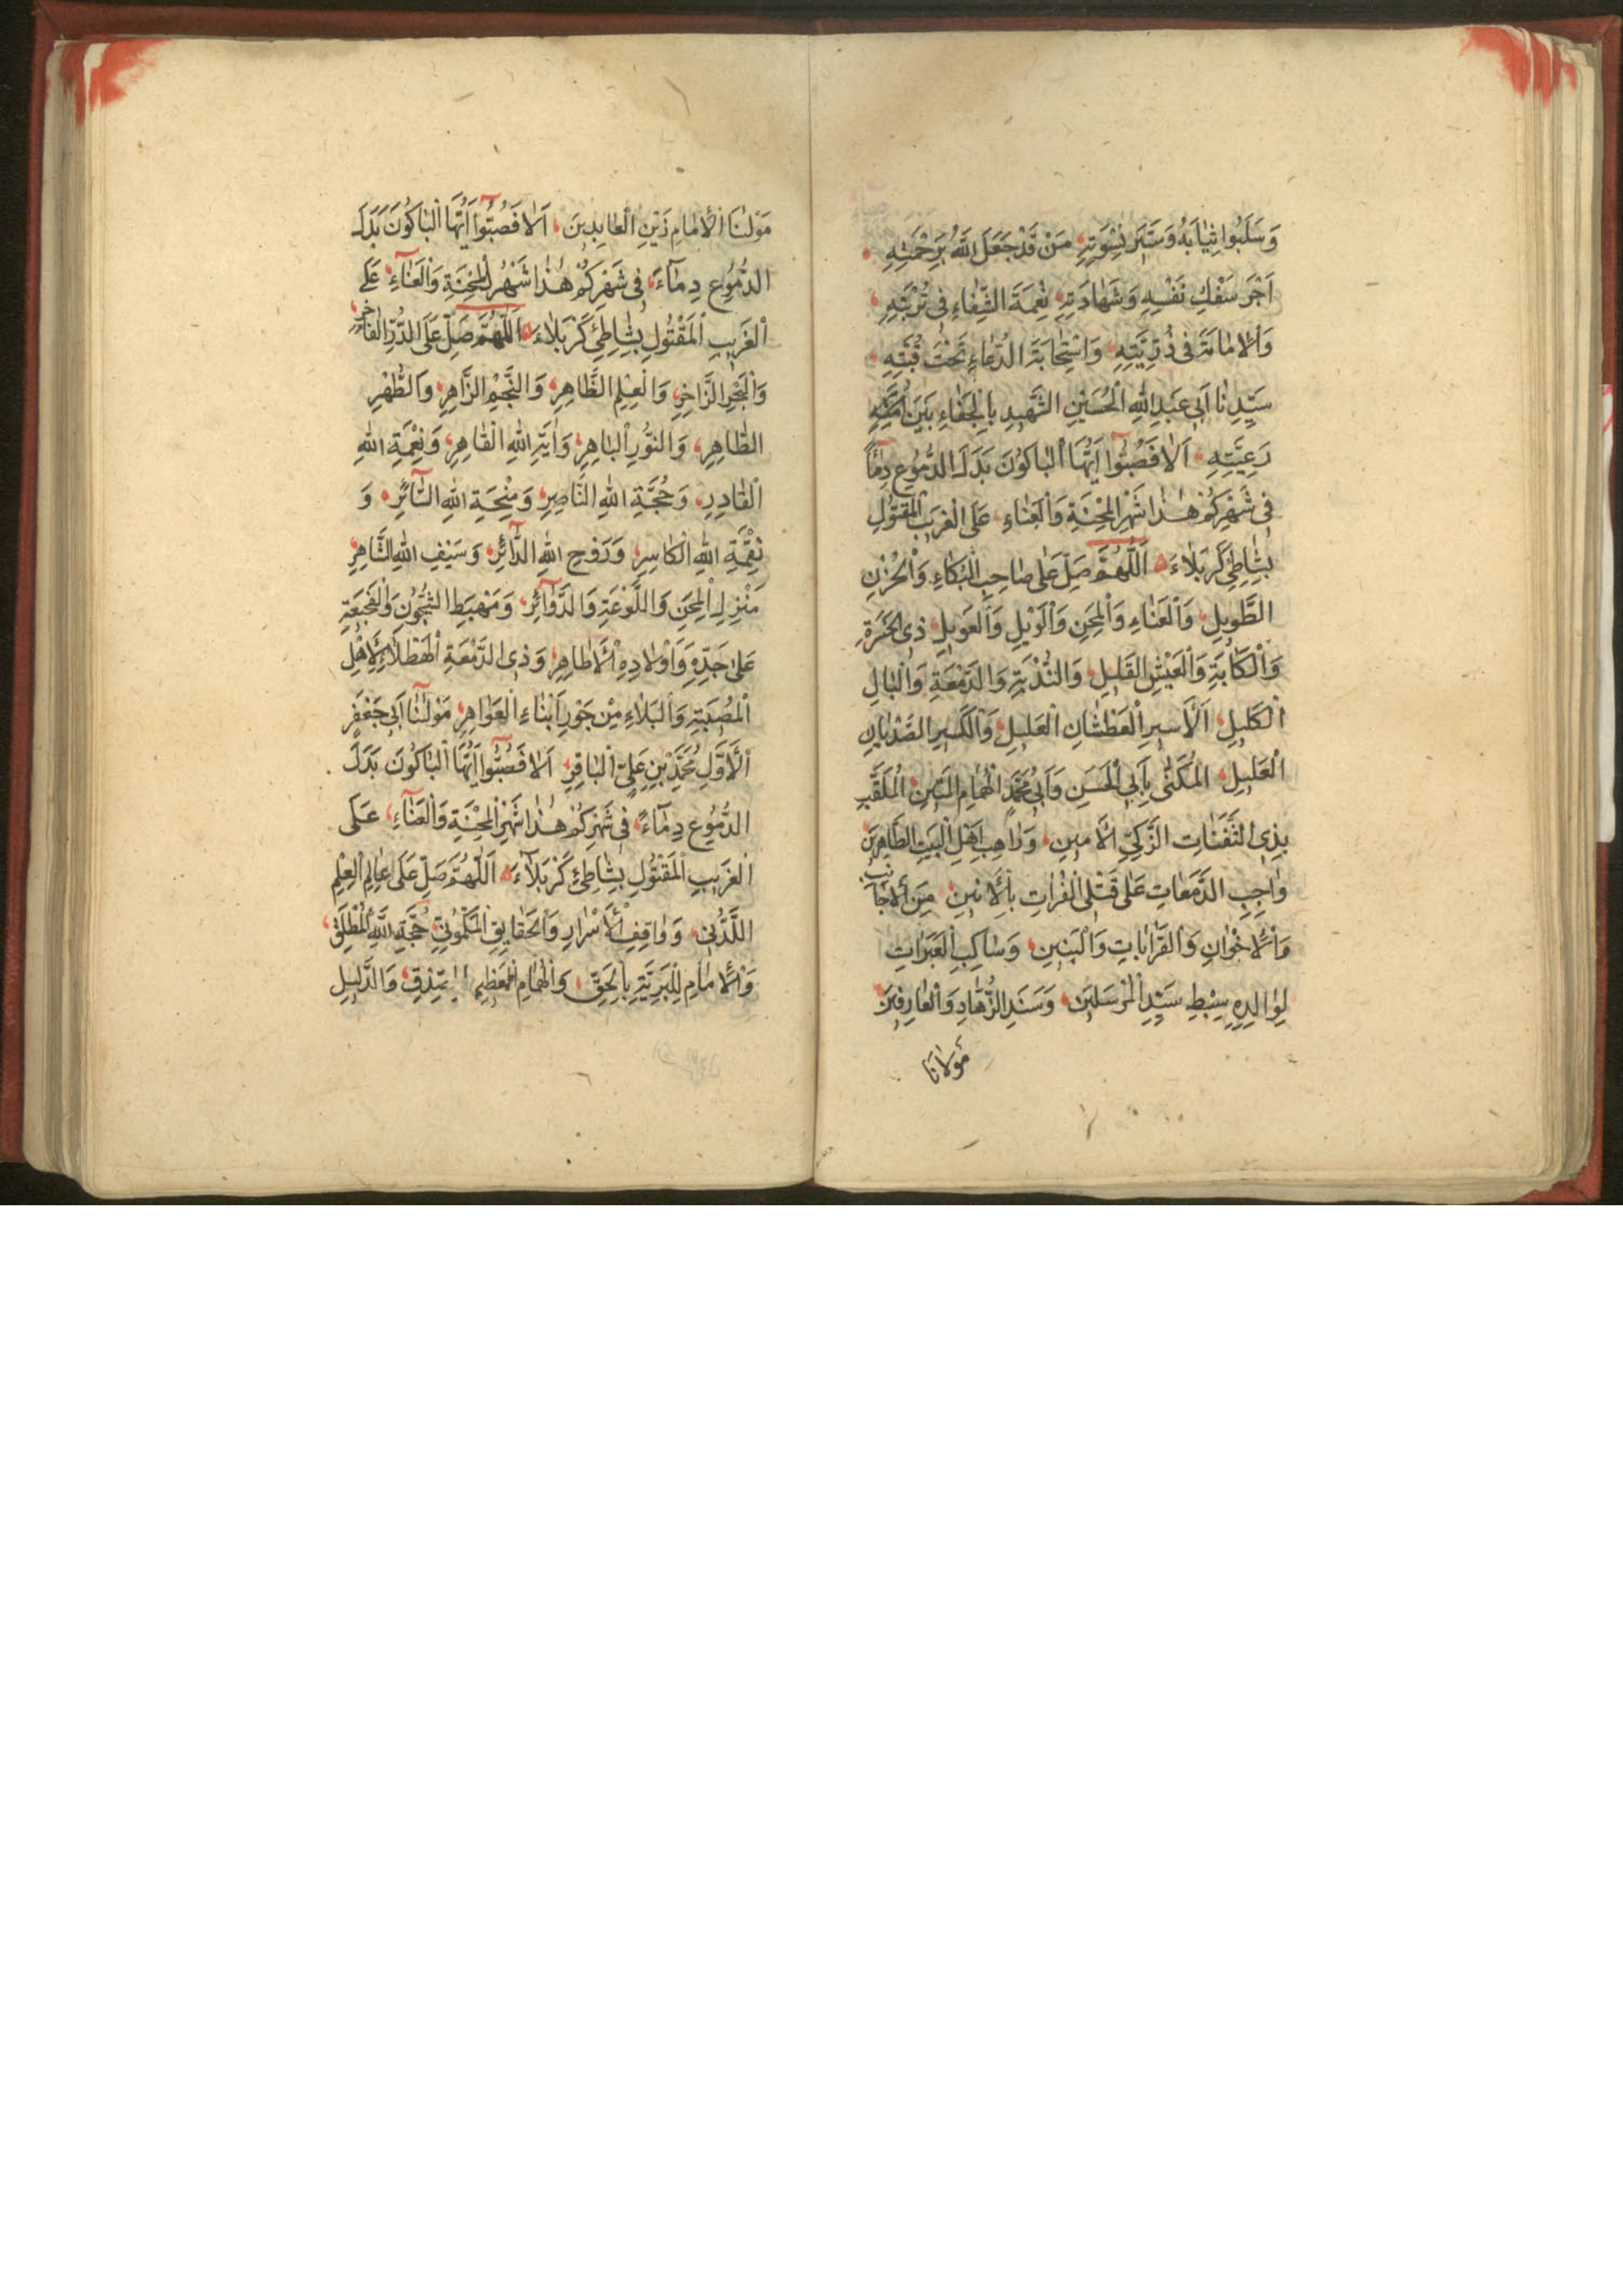 وَسَلَبُوا ثِيَابَهُ وَسَتَرَ نِسْوَتِهِ مَنْ قَدْ جَعَلَ اللّٰهُ بِرَحْمَتِهِ
اَجْرَ سَفْكِ نَفْسِهِ وَشَهَادَتِهِ نِعْمَةَ الشِّفَاءِ فِى تُرْبَتِهِ
وَالْاِمَامَةَ فِى ذُرِّيَّتِهِ وَاسْتِجَابَةَ الدُّعَاءِ تَحْتَ قُبَّتِهِ
سَيِّدِنَا اَبِى عَبْدِ اللّٰهِ الْحُسَيْنِ الشَّهِيدِ بِالْجَفَاءِ بَيْنَ اُمَّتِهِ
رَعِيَّتِهِ اَلَا فَصُبُّوا اَيُّهَا الْبَاكُونَ بَدَلَ الدُّمُوعِ دِمَاءً
فِى شَهْرِكُمْ هٰذَا شَهْرِ الْمِحْنَةِ وَالْعَنَاءِ عَلَى الْغَرِيبِ الْمَقْتُولِ
بِشَاطِئِ كَرْبَلَاءَ اَللّٰهُمَّ صَلِّ عَلٰى صَاحِبِ الْبُكَاءِ وَالْحُزْنِ
الطَّوِيلِ وَالْعَنَاءِ وَالْمِحَنِ وَالْوَيْلِ وَالْعَوِيلِ ذِى الْحَسْرَةِ
وَالْكَآبَةِ وَالْعَيْشِ الْقَلِيلِ وَالنُّدْبَةِ وَالدَّمْعَةِ وَالْبَالِ
الْكَلِيلِ اَلْاَسِيرِ الْعَطْشَانِ الْعَلِيلِ وَالْكَسِيرِ الصَّدْيَانِ
الْغَلِيلِ الْمُكَنّٰى بِاَبِى الْحَسَنِ وَاَبِى مُحَمَّدٍ الْهُمَامِ الْمَتِينِ الْمُلَقَّبِ
بِذِى الثَّفَنَاتِ الزَّكِىِّ الْاَمِينِ وَرَاهِبِ اَهْلِ الْبَيْتِ الطَّاهِرِينَ
وَاجِبِ الدَّمَعَاتِ عَلٰى قَتْلَى الْفُرَاتِ بِالْاَنِينِ مِنَ الْاَجَانِبِ
وَالْاِخْوَانِ وَالْقَرَابَاتِ وَالْبَنِينِ وَسَاكِبِ الْعَبَرَاتِ
لِوَالِدِهِ سِبْطِ سَيِّدِ الْمُرْسَلِينَ وَسَنَدِ الزُّهَّادِ وَالْعَارِفِينَ
مَوْلَانَا
مَوْلٰنَا الْاِمَامِ زَيْنِ الْعَابِدِينَ اَلَا فَصُبُّوا اَيُّهَا الْبَاكُونَ بَدَلَ
الدُّمُوعِ دِمَآءً فِى شَهْرِكُمْ هٰذَا شَهْرِ الْمِحْنَةِ وَالْعَنَآءِ عَلَى
الْغَرِيبِ الْمَقْتُولِ بِشَاطِئِ كَرْبَلَاءَ اَللّٰهُمَّ صَلِّ عَلَى الدُّرِّ الْفَاخِرِ
وَالْبَحْرِ الزَّاخِرِ وَالْعِلْمِ الظَّاهِرِ وَالنَّجْمِ الزَّاهِرِ وَالطُّهْرِ
الطَّاهِرِ وَالنُّورِ الْبَاهِرِ وَاٰيَةِ اللّٰهِ الْقَاهِرِ وَنِعْمَةِ اللّٰهِ
الْقَادِرِ وَحُجَّةِ اللّٰهِ النَّاصِرِ وَمِنْحَةِ اللّٰهِ السَّآئِرِ وَ
نِقْمَةِ اللّٰهِ الْكَاسِرِ وَرُوحِ اللّٰهِ الدَّآئِرِ وَسَيْفِ اللّٰهِ الشَّاهِرِ
مَنْزِلِ الْمِحَنِ وَاللَّوْعَةِ وَالدَّوَآئِرِ وَمَهْبَطِ الشُّجُونِ وَالْفَجِيعَةِ
عَلٰى جَدِّهِ وَاَوْلَادِهِ الْاَطَاهِرِ وَذِى الدَّمْعَةِ الْهَطْلَآءِ لِاَهْلِ
الْمُصِيبَةِ وَالْبَلَاءِ مِنْ جَوْرِ اَبْنَاءِ الْعَوَاهِرِ مَوْلٰنَا اَبِى جَعْفَرٍ
الْاَوَّلِ مُحَمَّدِ بْنِ عَلِىٍّ الْبَاقِرِ اَلَا فَصُبُّوا اَيُّهَا الْبَاكُونَ بَدَلَ
الدُّمُوعِ دِمَآءً فِى شَهْرِكُمْ هٰذَا شَهْرِ الْمِحْنَةِ وَالْعَنَآءِ عَلَى
الْغَرِيبِ الْمَقْتُولِ بِشَاطِئِ كَرْبَلَآءَ اَللّٰهُمَّ صَلِّ عَلَى عَالِمِ الْعِلْمِ
اللَّدُنِّى وَوَاقِفِ الْاَسْرَارِ وَالْحَقَايِقِ حُجَّةِ اللّٰهِ الْمُطْلَقِ
وَالْاِمَامِ لِلْبَرِيَّةِ بِالْحَقِّ وَالْهُمَامِ الْعَظِيمِ وَالدَّلِيلِ